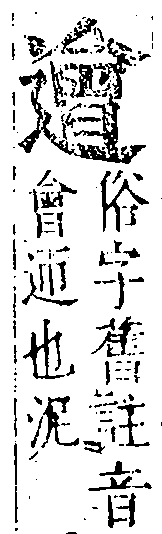 俗字舊註音
會迊也泥